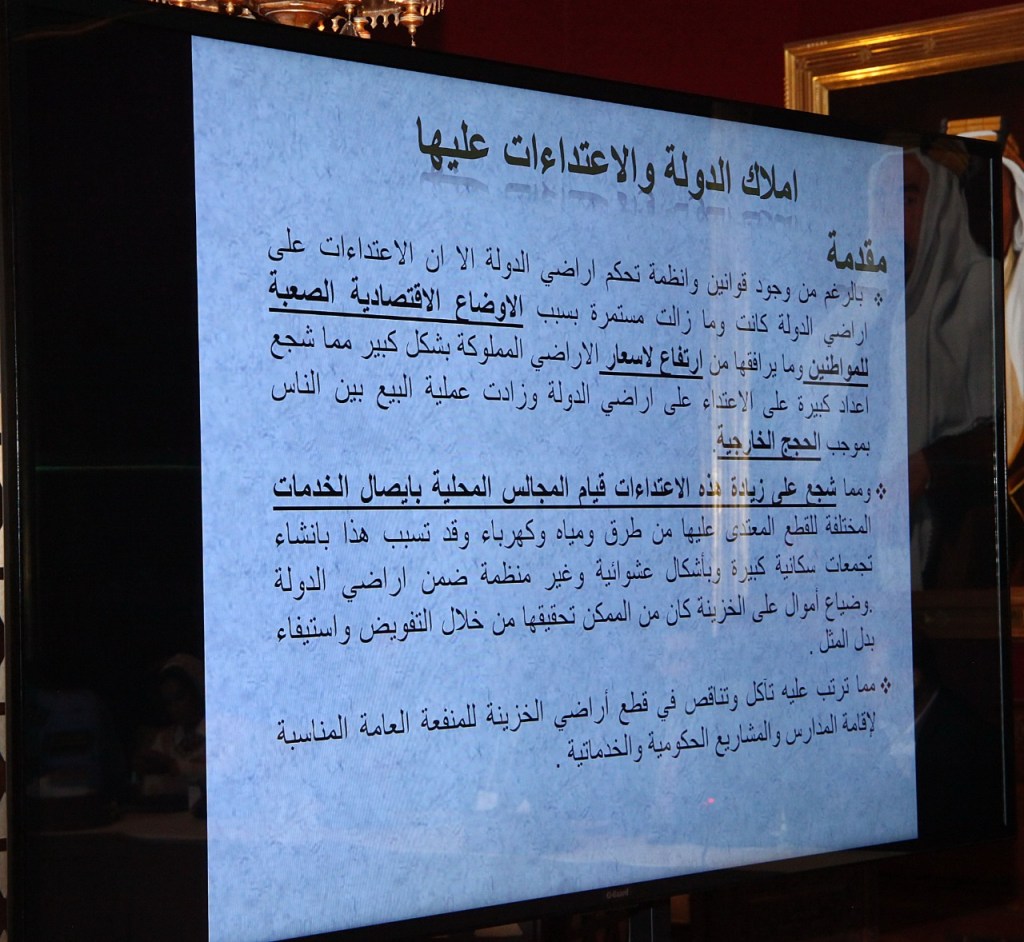 املاك الدولة والاعتداءات عليها
مقدمة
❖ بالرغم من وجود قوانين وانظمة تحكم اراضي الدولة الا ان الاعتداءات على
اراضي الدولة كانت وما زالت مستمرة بسبب الاوضاع الاقتصادية الصعبة
للمواطنين وما يرافقها من ارتفاع لاسعار الاراضي المملوكة بشكل كبير مما شجع
اعداد كبيرة على الاعتداء على اراضي الدولة وزادت عملية البيع بين الناس
بموجب الحجج الخارجية.
❖ ومما شجع على زيادة هذه الاعتداءات قيام المجالس المحلية بايصال الخدمات
المختلفة للقطع المعتدى عليها من طرق ومياه وكهرباء وقد تسبب هذا بانشاء
تجمعات سكانية كبيرة وبأشكال عشوائية وغير منظمة ضمن اراضي الدولة
.وضياع أموال على الخزينة كان من الممكن تحقيقها من خلال التفويض واستيفاء
بدل المثل .
❖ مما ترتب عليه تآكل وتناقص في قطع أراضي الخزينة للمنفعة العامة المناسبة
لإقامة المدارس والمشاريع الحكومية والخدماتية .